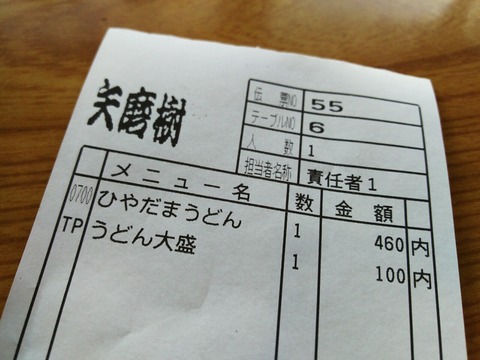 矢磨樹
伝票NO 55
テーブルNO 6
人数 1
担当者名称 責任者1
メニュー名 数 金額
0700 ひやだまうどん 1 460 内
TP うどん大盛 1 100 内